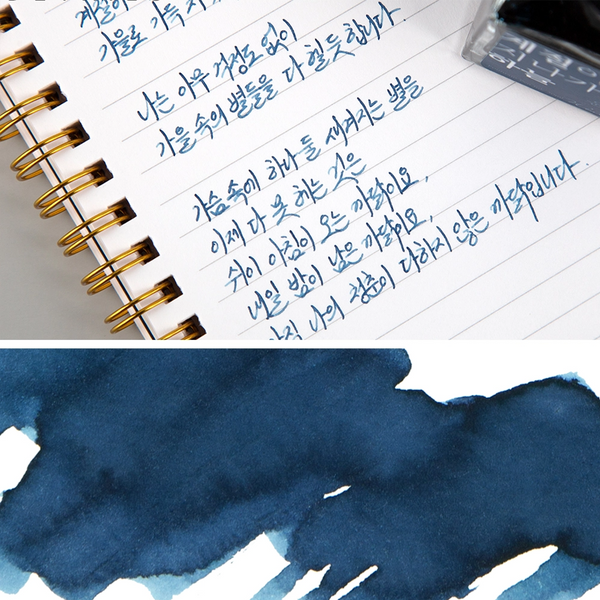 계절이
가을로 가득 차
나는 아무 걱정도 없이
가을 속의 별들을 다 헬듯합니다.
가슴속에 하나 둘 새겨지는 별을
이제 다 못 헤는 것은
쉬이 아침이 오는 까닭이오,
내일 밤이 남은 까닭이오,
아직 나의 청춘이 다하지 않은 까닭입니다.
계절이
지나가
하늘